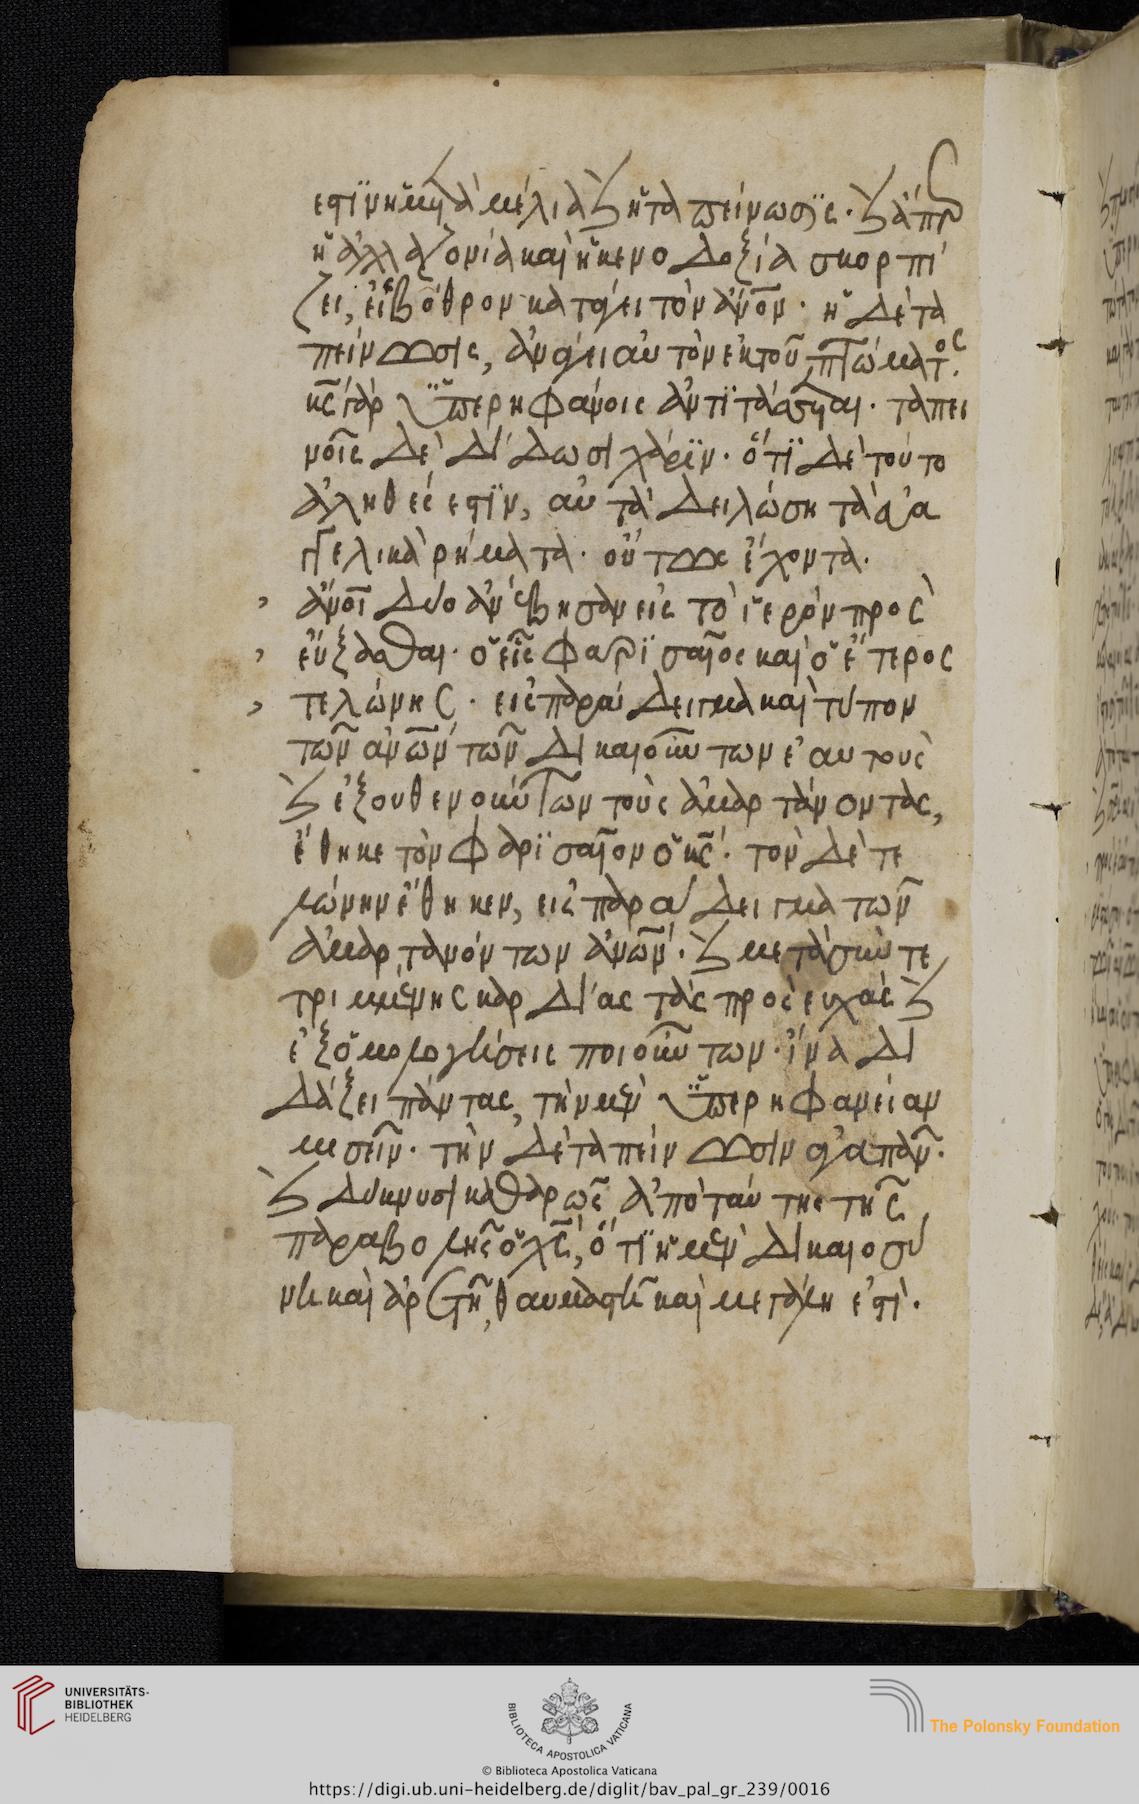 ἐστϊν ἡ μεγάλη θεμέλια καὶ ἡ ταπείνωσϊς· καὶ ἅπερ
ἡ ἀλλαζονία καὶ ἡ κενοδοξία σκορπί
ζει, εἰς βόθρον κατάγει τὸν ἄνον· ἡ δὲ τα
πείνωσις, ἀνάγει αὐτὸν ἐκ τοῦ πτώματος.
κς γὰρ ὑπερηφάνοις ἀντϊτάσσεται· ταπει
νοῖς δὲ δίδωσι χάρϊν· ὅτϊ δὲ τοῦτο
ἀληθές ἐστϊν, αὐτὰ δειλώση τὰ εὐα
γγελικὰ ρήματα· οὕτως ἔχοντα.
ἄνοι δύο ἀνέβησαν εἰς τὸ ἱερὸν προς
εύξασθαι· ὁ εἷς Φαρϊσαῖος καὶ ὁ ἕτερος
τελώνης· εἰς παράδειγμα καὶ τύπον
τῶν ἀνων τῶν δικαιούντων ἑαυτοὺς
καὶ ἐξουθενούντων τοὺς ἁμαρτάνοντας,
ἔθηκε τὸν Φαρϊσαῖον ὁ κς· τον δὲ τε
λώνην ἔθηκεν, εἰς παράδειγμα τῶν
ἁμαρτανόντων ἀνων· καὶ μετὰ συντε
τριμμένης καρδίας τὰς προσευχὰς καὶ
ἐξομολογήσεις ποιούντων· ἵνα δι
δάξει πάντας, τὴν μὲν ὑπερηφανείαν
μισεῖν· τὴν δὲ ταπείνωσιν ἀγαπᾶν·
καὶ δύκνυσι καθαρῶς ἀπὸ ταύτης τῆς
παραβολῆς ὁ χς, ὅτϊ ἡ μὲν δικαιοσύ
νη καὶ ἀρετὴ, θαυμαστὴ καὶ μεγάλη ἐστὶ.
UNIVERSITÄTS-
BIBLIOTHEK
HEIDELBERG
BIBLIOTECA APOSTOLICA VATICANA
The Polonsky Foundation
© Biblioteca Apostolica Vaticana
https://digi.ub.uni-heidelberg.de/diglit/bav_pal_gr_239/0016